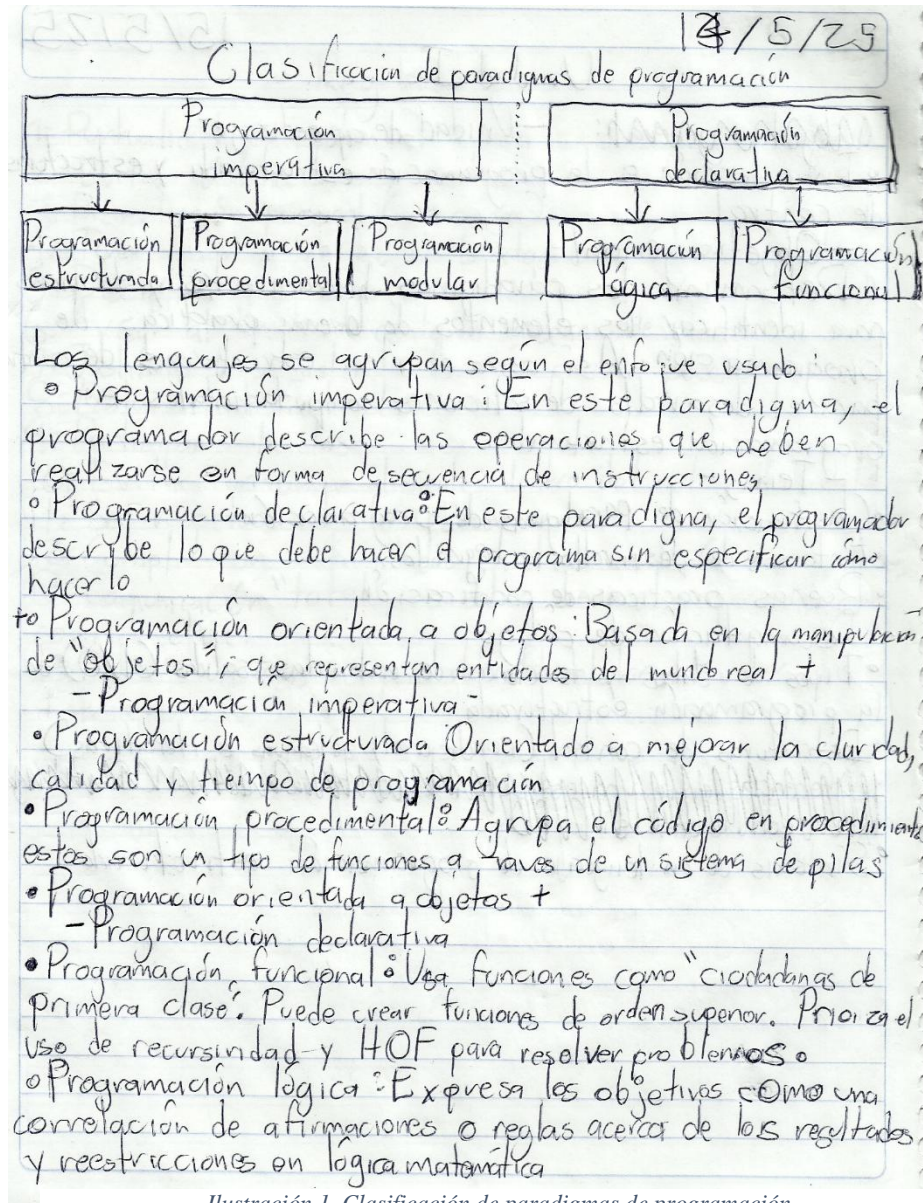 /5/25
Clasificación de paradigmas de programación
Programación
imperativa
Programación
declarativa
Programación
estructurada
Programación
procedimental
Programación
modular
Programación
lógica
Programación
funcional
Los lenguajes se agrupan según el enfoque usado:
• Programación imperativa: En este paradigma, el
programador describe las operaciones que deben
realizarse en forma de secuencia de instrucciones
• Programación declarativa: En este paradigna, el programador
describe lo que debe hacer el programa sin especificar cómo
hacerlo
+• Programación orientada a objetos: Basada en la manipulacion
de "objetos", que representan entidades del mundo real +
- Programación imperativa -
• Programación estructurada Orientado a mejorar la claridad,
calidad y tiempo de programación
• Programación procedimental: Agrupa el código en procedimientos
estos son un tipo de funciones a traves de un sistema de pilas
• Programación orientada a objetos +
- Programación declarativa
• Programación funcional: Usa funciones como "ciudadanas de
primera clase". Puede crear funciones de orden superior. Prioriza el
uso de recursividad y HOF para resolver problemas.
• Programación lógica: Expresa los objetivos como una
correlación de afirmaciones o reglas acerca de los resultados
y reestricciones en lógica matemática
Ilustración 1. Clasificación de paradigmas de programación